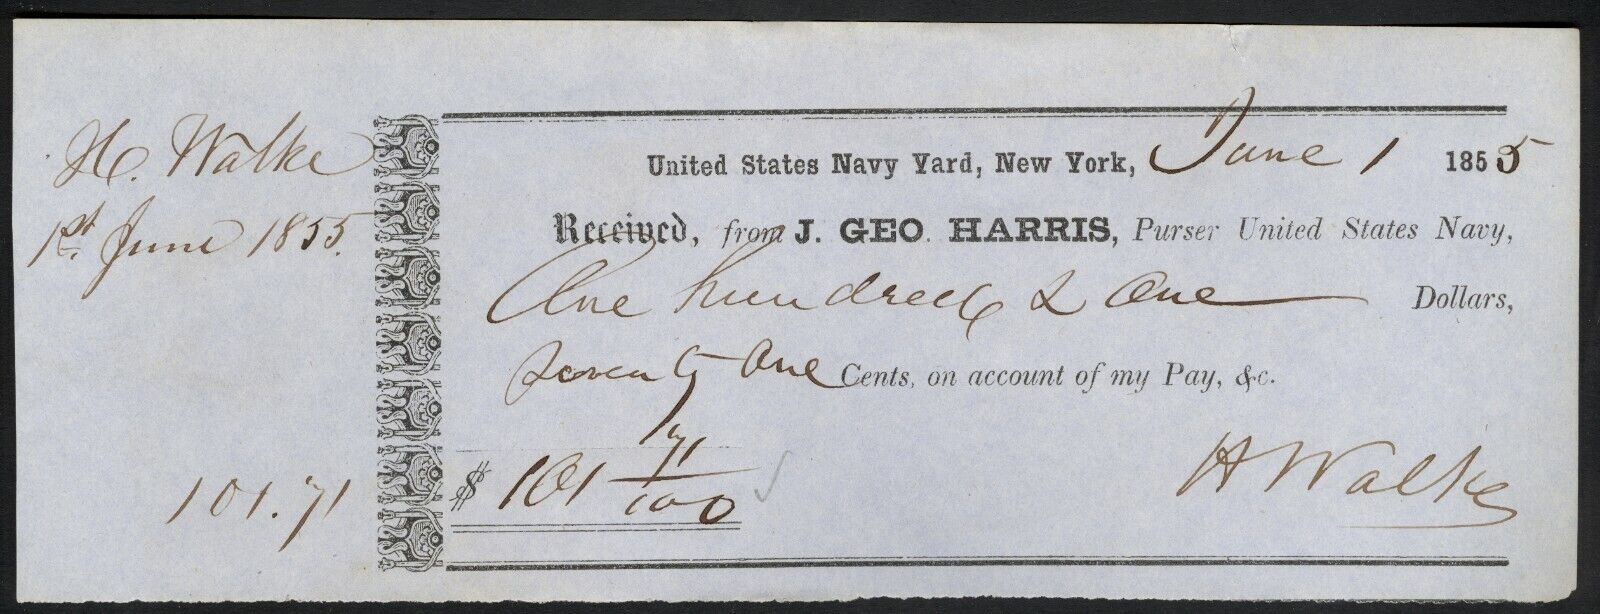 H. Walke
1st June 1855.
101.71
United States Navy Yard, New York, June 1 1855
Received, from J. GEO. HARRIS, Purser United States Navy,
One hundred & One Dollars,
Seventy One Cents, on account of my Pay, &c.
$ 101 71/100
H Walke